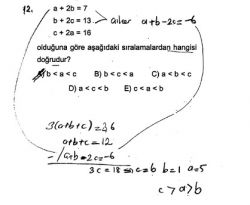 12. a + 2b = 7
b + 2c = 13 a+b-2c=-6
c + 2a = 16
olduğuna göre aşağıdaki sıralamalardan hangisi
doğrudur?
A) b < a < c B) b < c < a C) a < b < c
D) a < c < b E) c < a < b
3(a+b+c)=36
a+b+c=12
-/a+b-2c=-6
3c=18 c=6 b=1 a=5
c>a>b